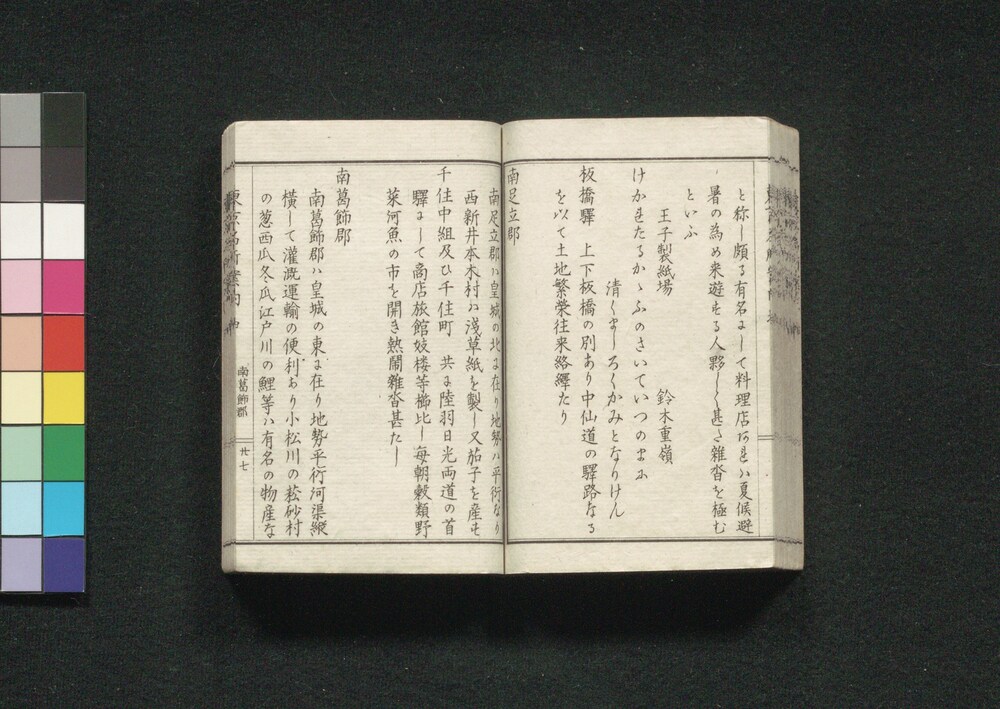 と称し頗る有名にして料理店アレハ夏候避
暑の為め来遊する人夥しく甚た雑沓を極む
といふ
王子製紙場　鈴木重嶺
けかれたるかゝふのさいていつのまに
清くましろくかみとなりけん
板橋驛　上下板橋の別あり中仙道の驛路なる
を以て土地繁榮往来絡繹たり
南足立郡
南足立郡ハ皇城の北に在り地勢ハ平衍なり
西新井本木村ハ浅草紙を製し又茄子を産す
千住中組及ひ千住町　共に陸羽日光両道の首
驛にして商店旅館妓楼等櫛比し毎朝穀類野
菜河魚の市を開き熱閙雑沓甚たし
南葛飾郡
南葛飾郡ハ皇城の東に在り地勢平衍河渠縦
横して灌漑運輸の便利あり小松川の菘砂村
の葱西瓜冬瓜江戸川の鯉等ハ有名の物産な
南葛飾郡
廿七